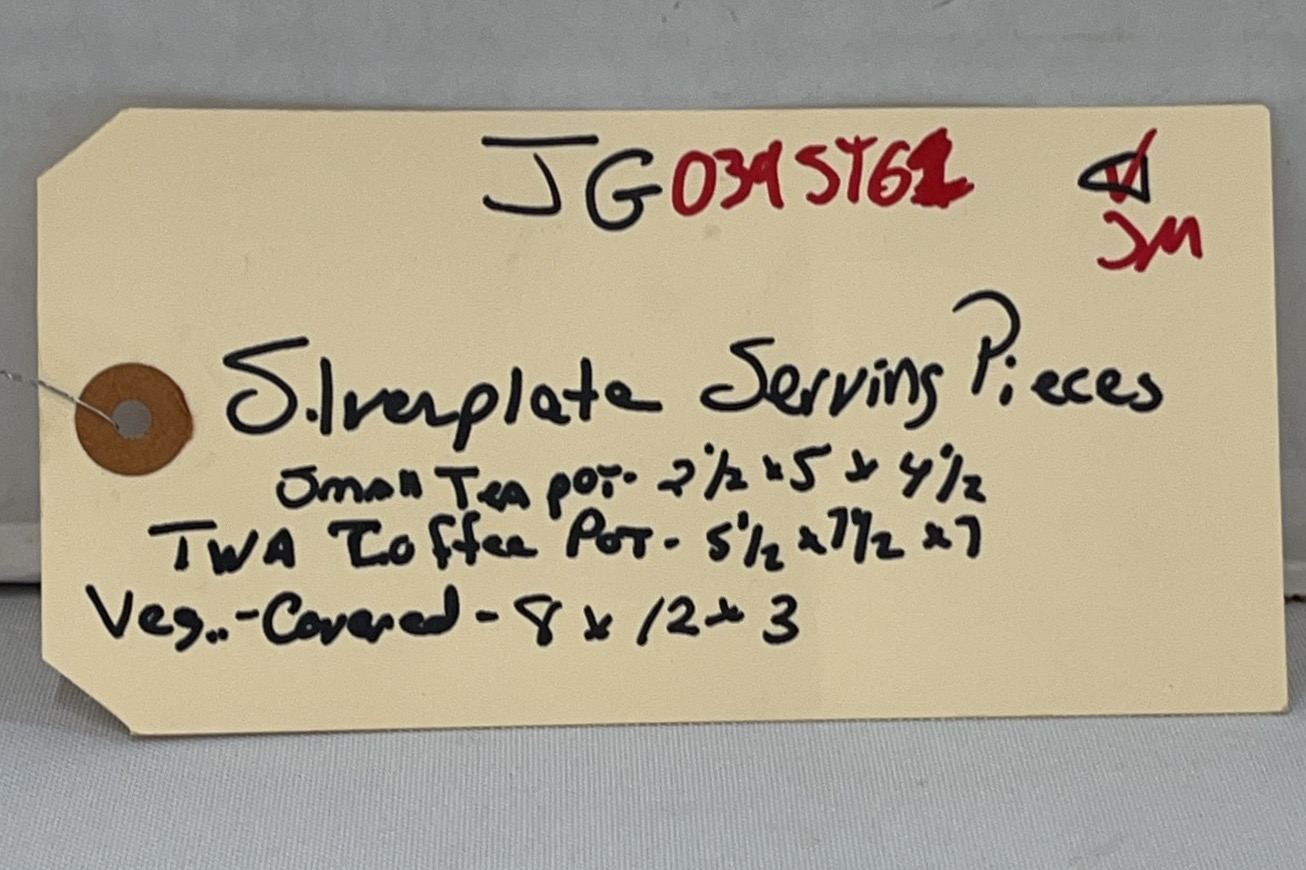 JG039ST61
JM
Silverplate Serving Pieces
Small Tea pot- 2 1/2 x 5 x 4 1/2
TWA Coffee Pot - 5 1/2 x 7 1/2 x 7
Veg..-Covered - 8 x 12 x 3